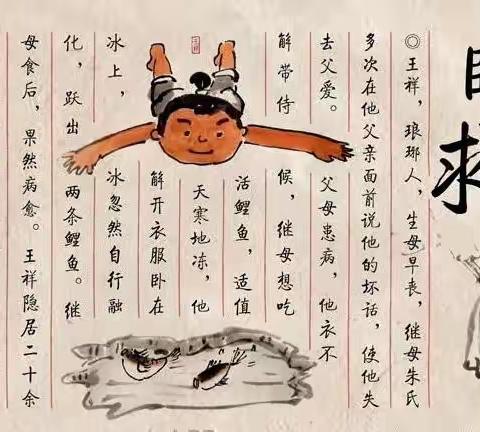 求
◎王祥，琅琊人，生母早丧，继母朱氏
多次在他父亲面前说他的坏话，使他失
去父爱。父母患病，他衣不
解带侍候，继母想吃
活鲤鱼，适值
天寒地冻，他
解开衣服卧在
冰上，冰忽然自行融
化，跃出两条鲤鱼。继
母食后，果然病愈。王祥隐居二十余